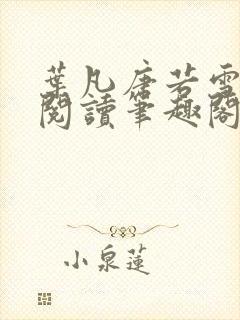 葉凡唐若雪
閱讀筆趣閣
小泉蓮